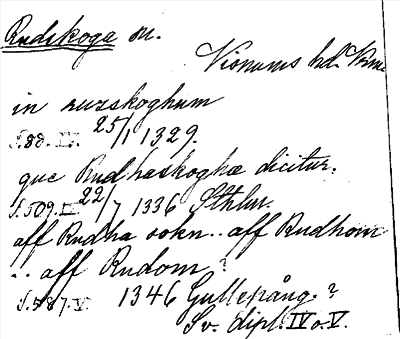 Rudskoga sn.
Visnums hd. Vrm.
in ruzskoghum
S. 88. IV. 25/1 1329.
que Rudhaskogha dicitur.
S. 509. IV 22/7 1336 Sthlm.
aff Rudha sokn.. aff Rudhom
.. aff Rudom?
S. 587. V. 1346 Gullespång?
Sv. dipl. IV o. V.